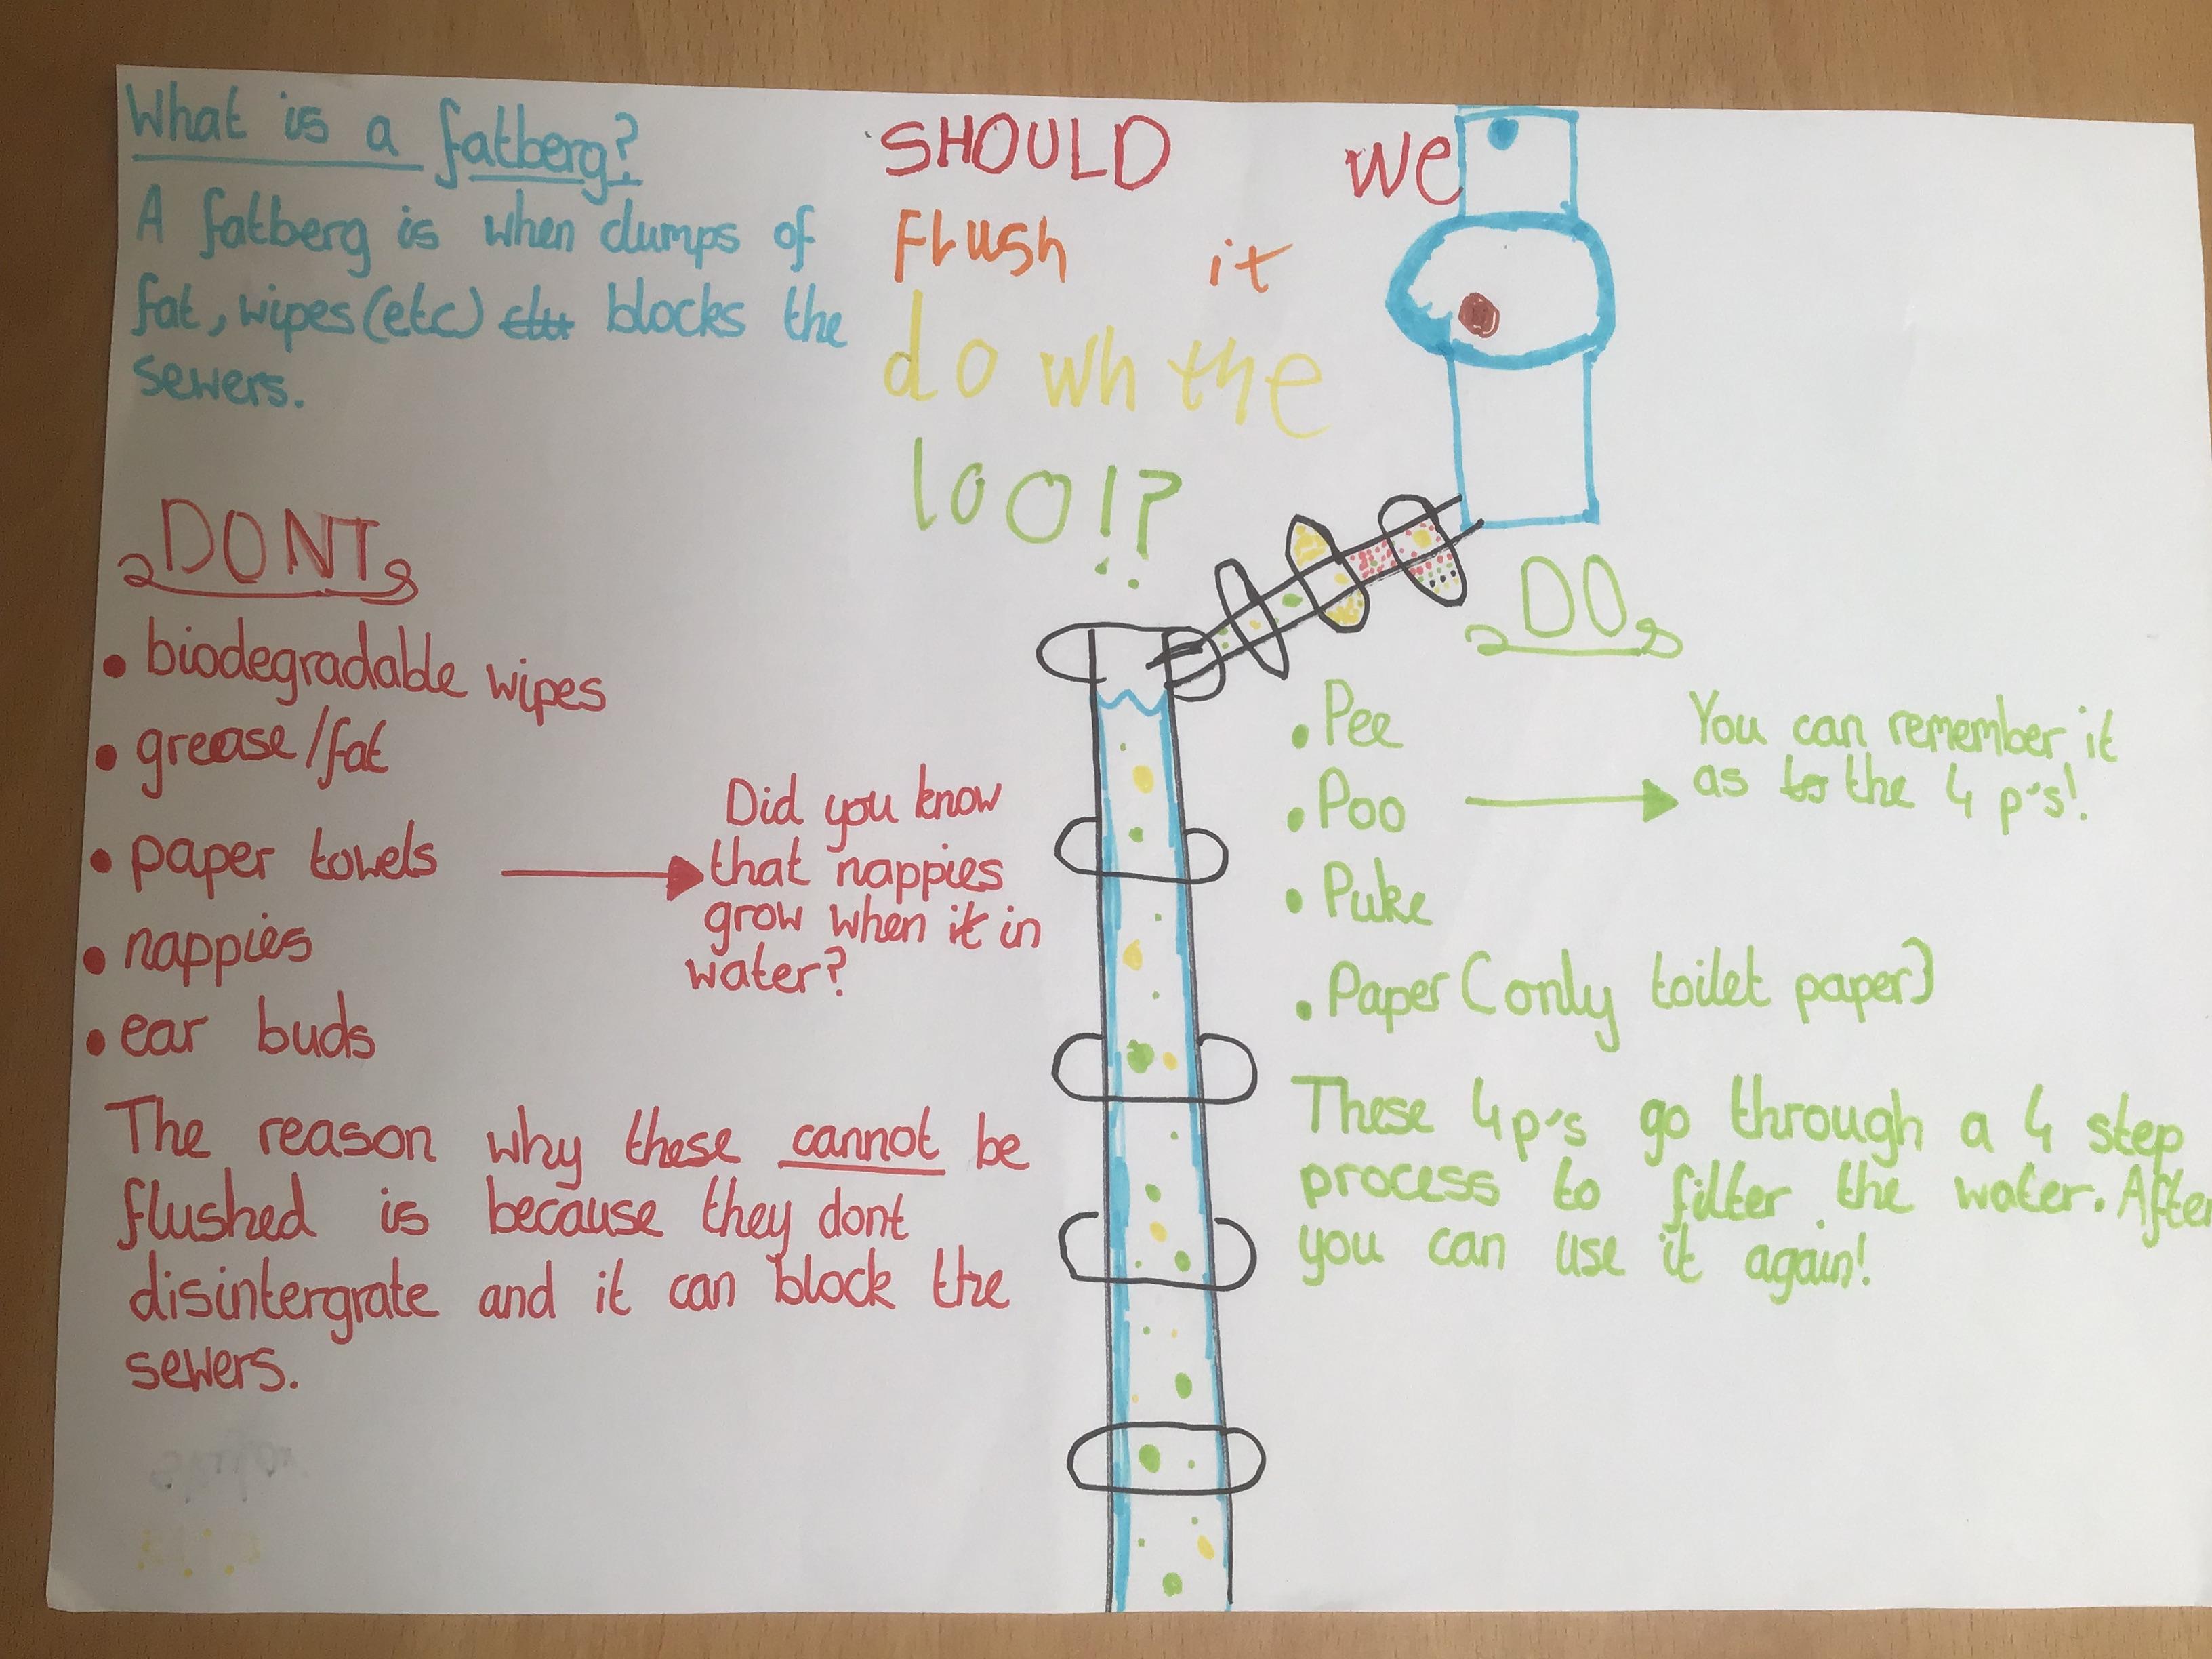 What is a fatberg?
A fatberg is when clumps of
fat, wipes (etc) blocks the
sewers.
SHOULD we
FLush it
down the
loo!?
DONT
• biodegradable wipes
• grease/fat
• paper towels
• nappies
• ear buds
Did you know
that nappies
grow when it in
water?
The reason why these cannot be
flushed is because they dont
disintergrate and it can block the
sewers.
DO
• Pee
• Poo
• Puke
• Paper (only toilet paper)
You can remember it
as the 4 p's!
These 4p's go through a 4 step
process to filter the water. After
you can use it again!